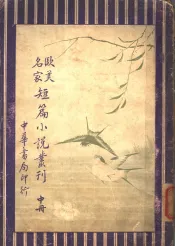 歐美
名家
短篇小説叢刊
中冊
中華書局印行